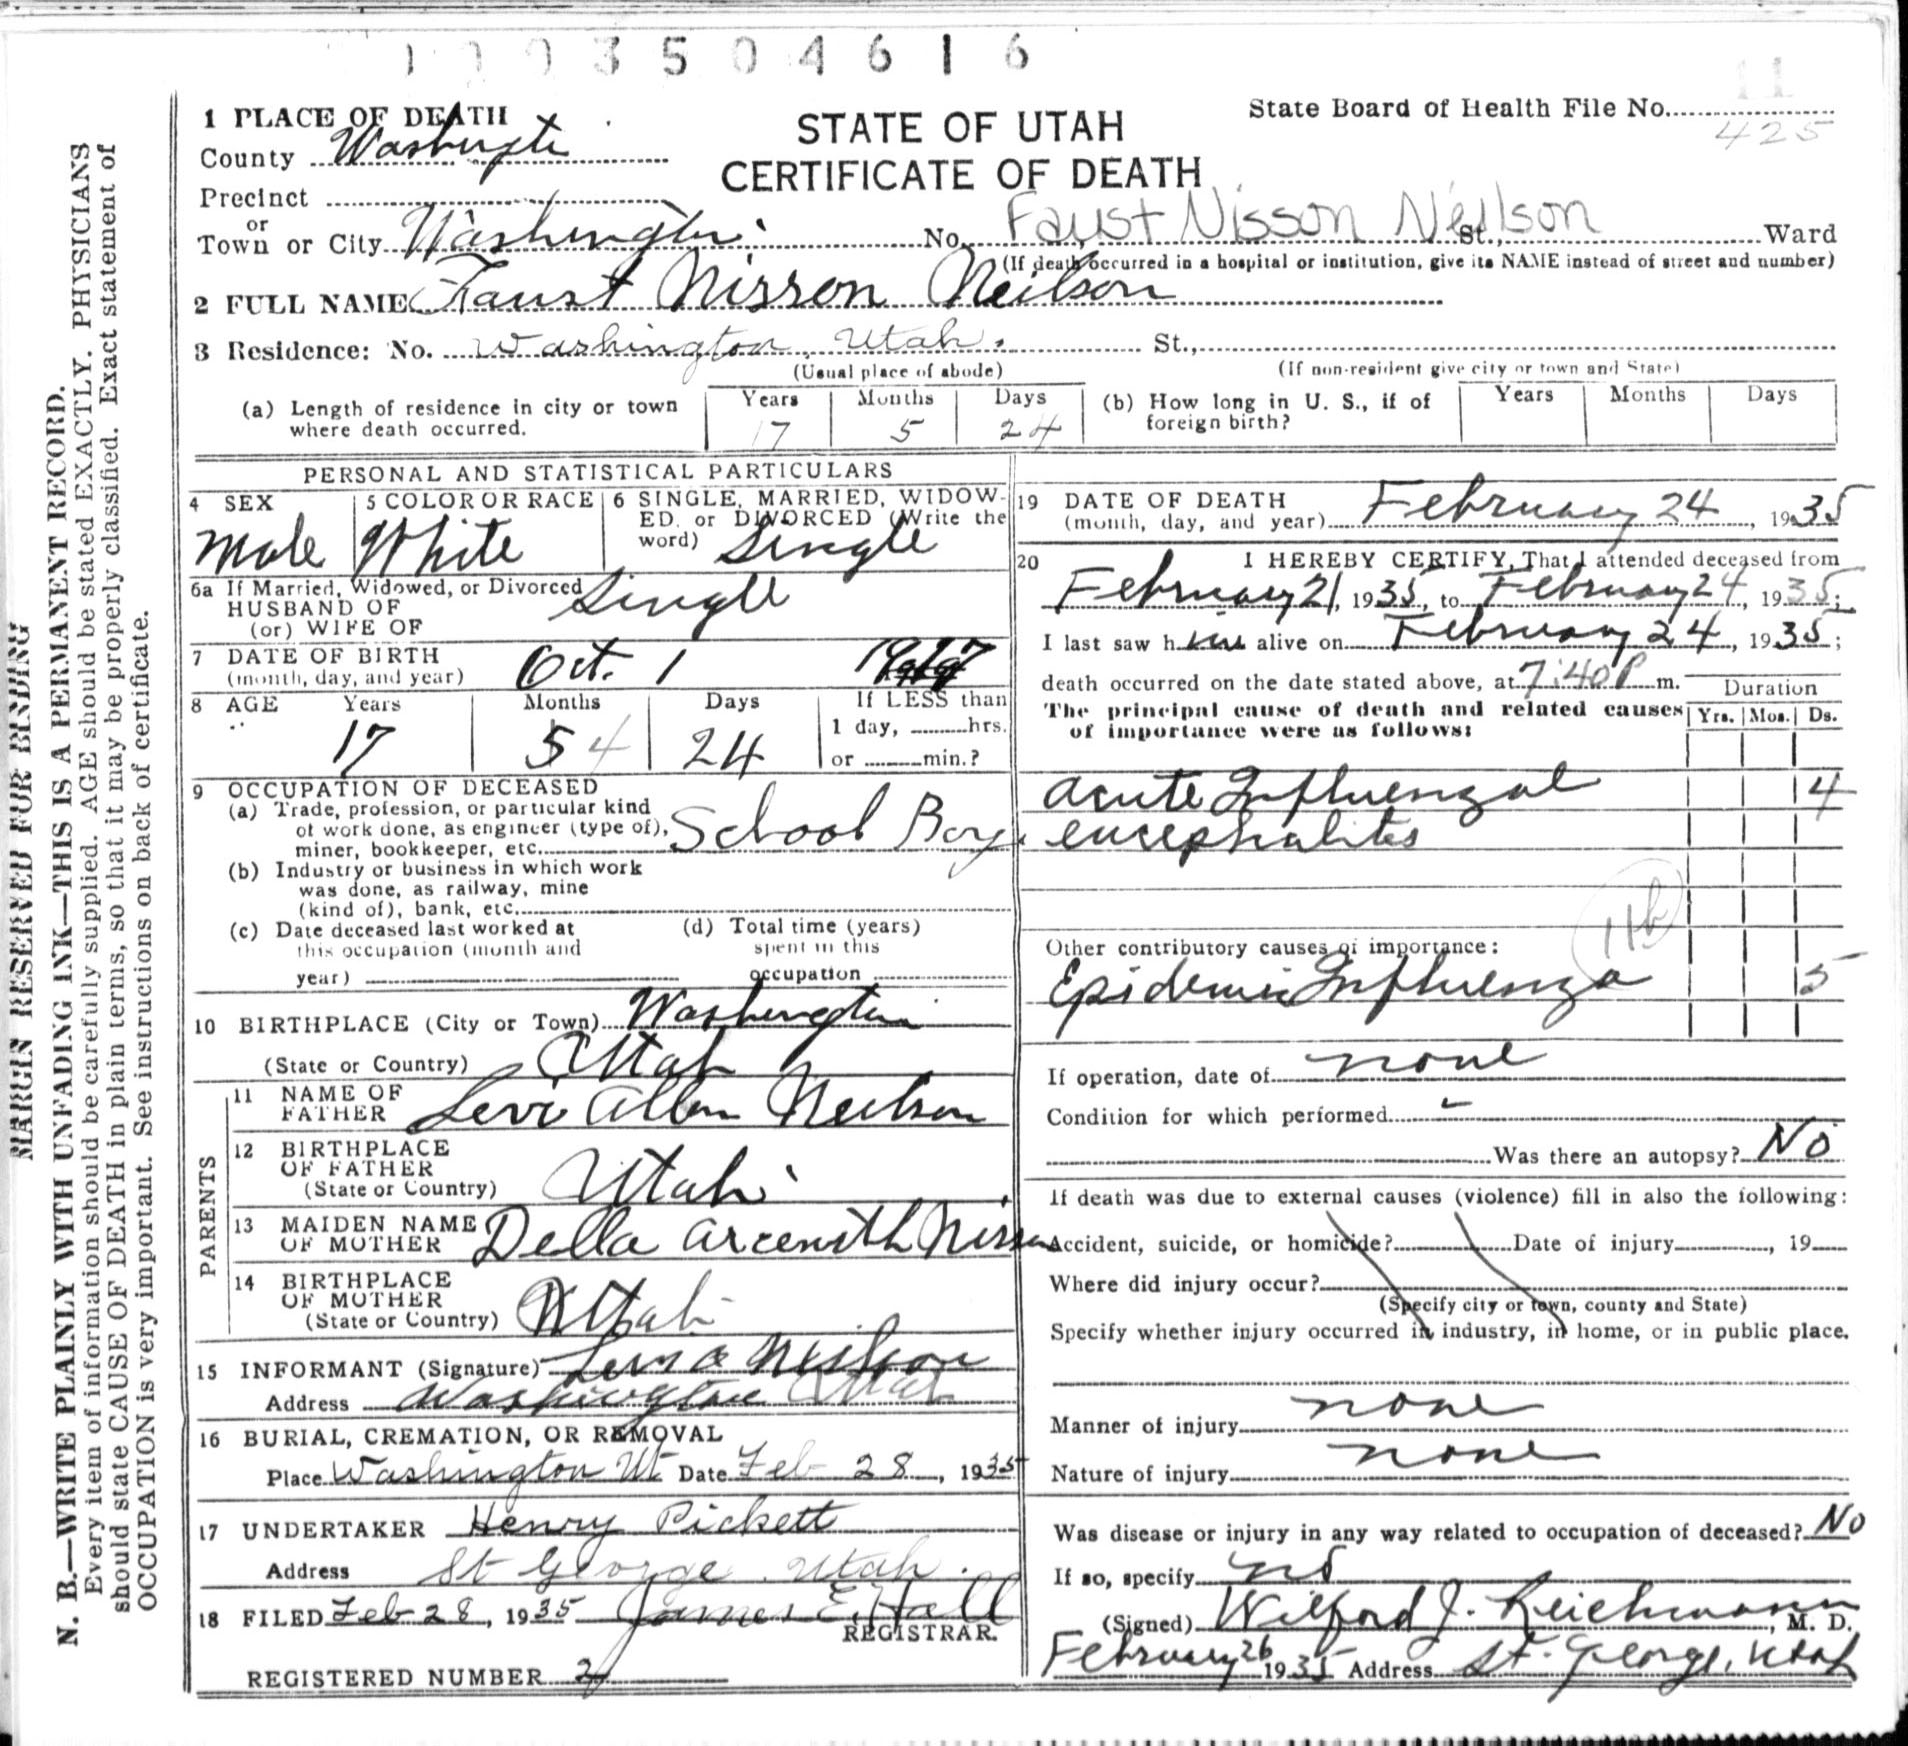 1 1 0 3 5 0 4 6 1 6
11
1 PLACE OF DEATH
County Washington
STATE OF UTAH
CERTIFICATE OF DEATH
State Board of Health File No.
425
Precinct
or
Town or City Washington No. Faust Nisson Neilson St., Ward
(If death occurred in a hospital or institution, give its NAME instead of street and number)
2 FULL NAME Faust Nisson Neilson
3 Residence: No. Washington, Utah. St.,
(Usual place of abode) (If non-resident give city or town and State)
(a) Length of residence in city or town where death occurred. Years 17 Months 5 Days 24
(b) How long in U. S., if of foreign birth? Years Months Days
PERSONAL AND STATISTICAL PARTICULARS
4 SEX Male
5 COLOR OR RACE White
6 SINGLE, MARRIED, WIDOWED, or DIVORCED (Write the word) Single
6a If Married, Widowed, or Divorced
HUSBAND OF
(or) WIFE OF Single
7 DATE OF BIRTH
(month, day, and year) Oct. 1 1917
8 AGE Years 17 Months 5 4 Days 24
If LESS than
1 day, hrs.
or min.?
9 OCCUPATION OF DECEASED
(a) Trade, profession, or particular kind
of work done, as engineer (type of),
miner, bookkeeper, etc. School Boy.
(b) Industry or business in which work
was done, as railway, mine
(kind of), bank, etc.
(c) Date deceased last worked at
this occupation (month and
year)
(d) Total time (years)
spent in this
occupation
10 BIRTHPLACE (City or Town) Washington
(State or Country) Utah
PARENTS
11 NAME OF
FATHER Levi Allen Neilson
12 BIRTHPLACE
OF FATHER
(State or Country) Utah
13 MAIDEN NAME
OF MOTHER Della Arcenith Nisson
14 BIRTHPLACE
OF MOTHER
(State or Country) Utah
15 INFORMANT (Signature) Levi A Neilson
Address Washington Utah
16 BURIAL, CREMATION, OR REMOVAL
Place Washington Ut Date Feb 28, 1935
17 UNDERTAKER Henry Pickett
Address St George Utah.
18 FILED Feb 28, 1935 James E. Hall
REGISTRAR.
REGISTERED NUMBER 2
19 DATE OF DEATH
(month, day, and year) February 24, 1935
20 I HEREBY CERTIFY, That I attended deceased from
February 21, 1935, to February 24, 1935;
I last saw him alive on February 24, 1935;
death occurred on the date stated above, at 7:40 P m.
The principal cause of death and related causes
of importance were as follows:
Duration
Yrs. Mos. Ds.
Acute Influenzal 4
encephalites
11b
Other contributory causes of importance:
Epidemic Influenza 5
If operation, date of none
Condition for which performed
Was there an autopsy? No
If death was due to external causes (violence) fill in also the following:
Accident, suicide, or homicide? Date of injury , 19
Where did injury occur?
(Specify city or town, county and State)
Specify whether injury occurred in industry, in home, or in public place.
Manner of injury none
Nature of injury none
Was disease or injury in any way related to occupation of deceased? No
If so, specify no
(Signed) Wilford J. Reichmann, M. D.
February 26 1935 Address St. George, Utah
MARGIN RESERVED FOR BINDING
N. B.—WRITE PLAINLY WITH UNFADING INK—THIS IS A PERMANENT RECORD.
Every item of information should be carefully supplied. AGE should be stated EXACTLY. PHYSICIANS
should state CAUSE OF DEATH in plain terms, so that it may be properly classified. Exact statement of
OCCUPATION is very important. See instructions on back of certificate.